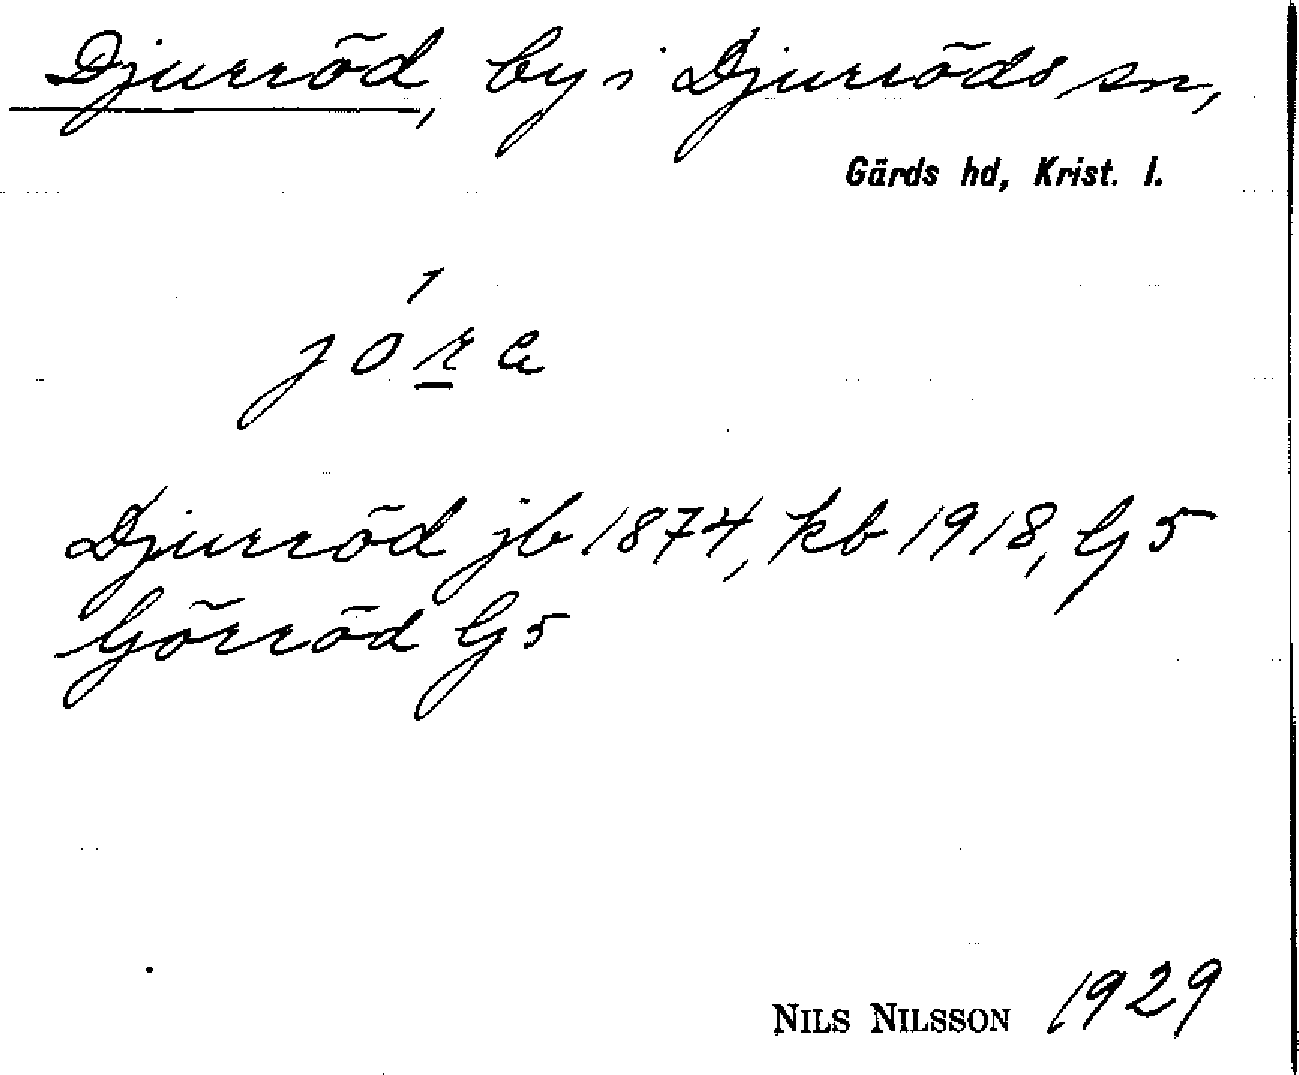 Djurröd, by i Djurröds sn,
Gärds hd, Krist. l.
Djurröd jb 1874, kb 1918, G5
Görröd G5
NILS NILSSON 1929